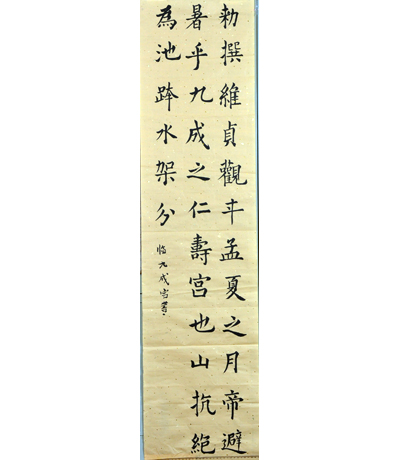 勅撰維貞觀年孟夏之月帝避
暑乎九成之仁壽宮也山抗絕
為池跨水架分
臨九成宮